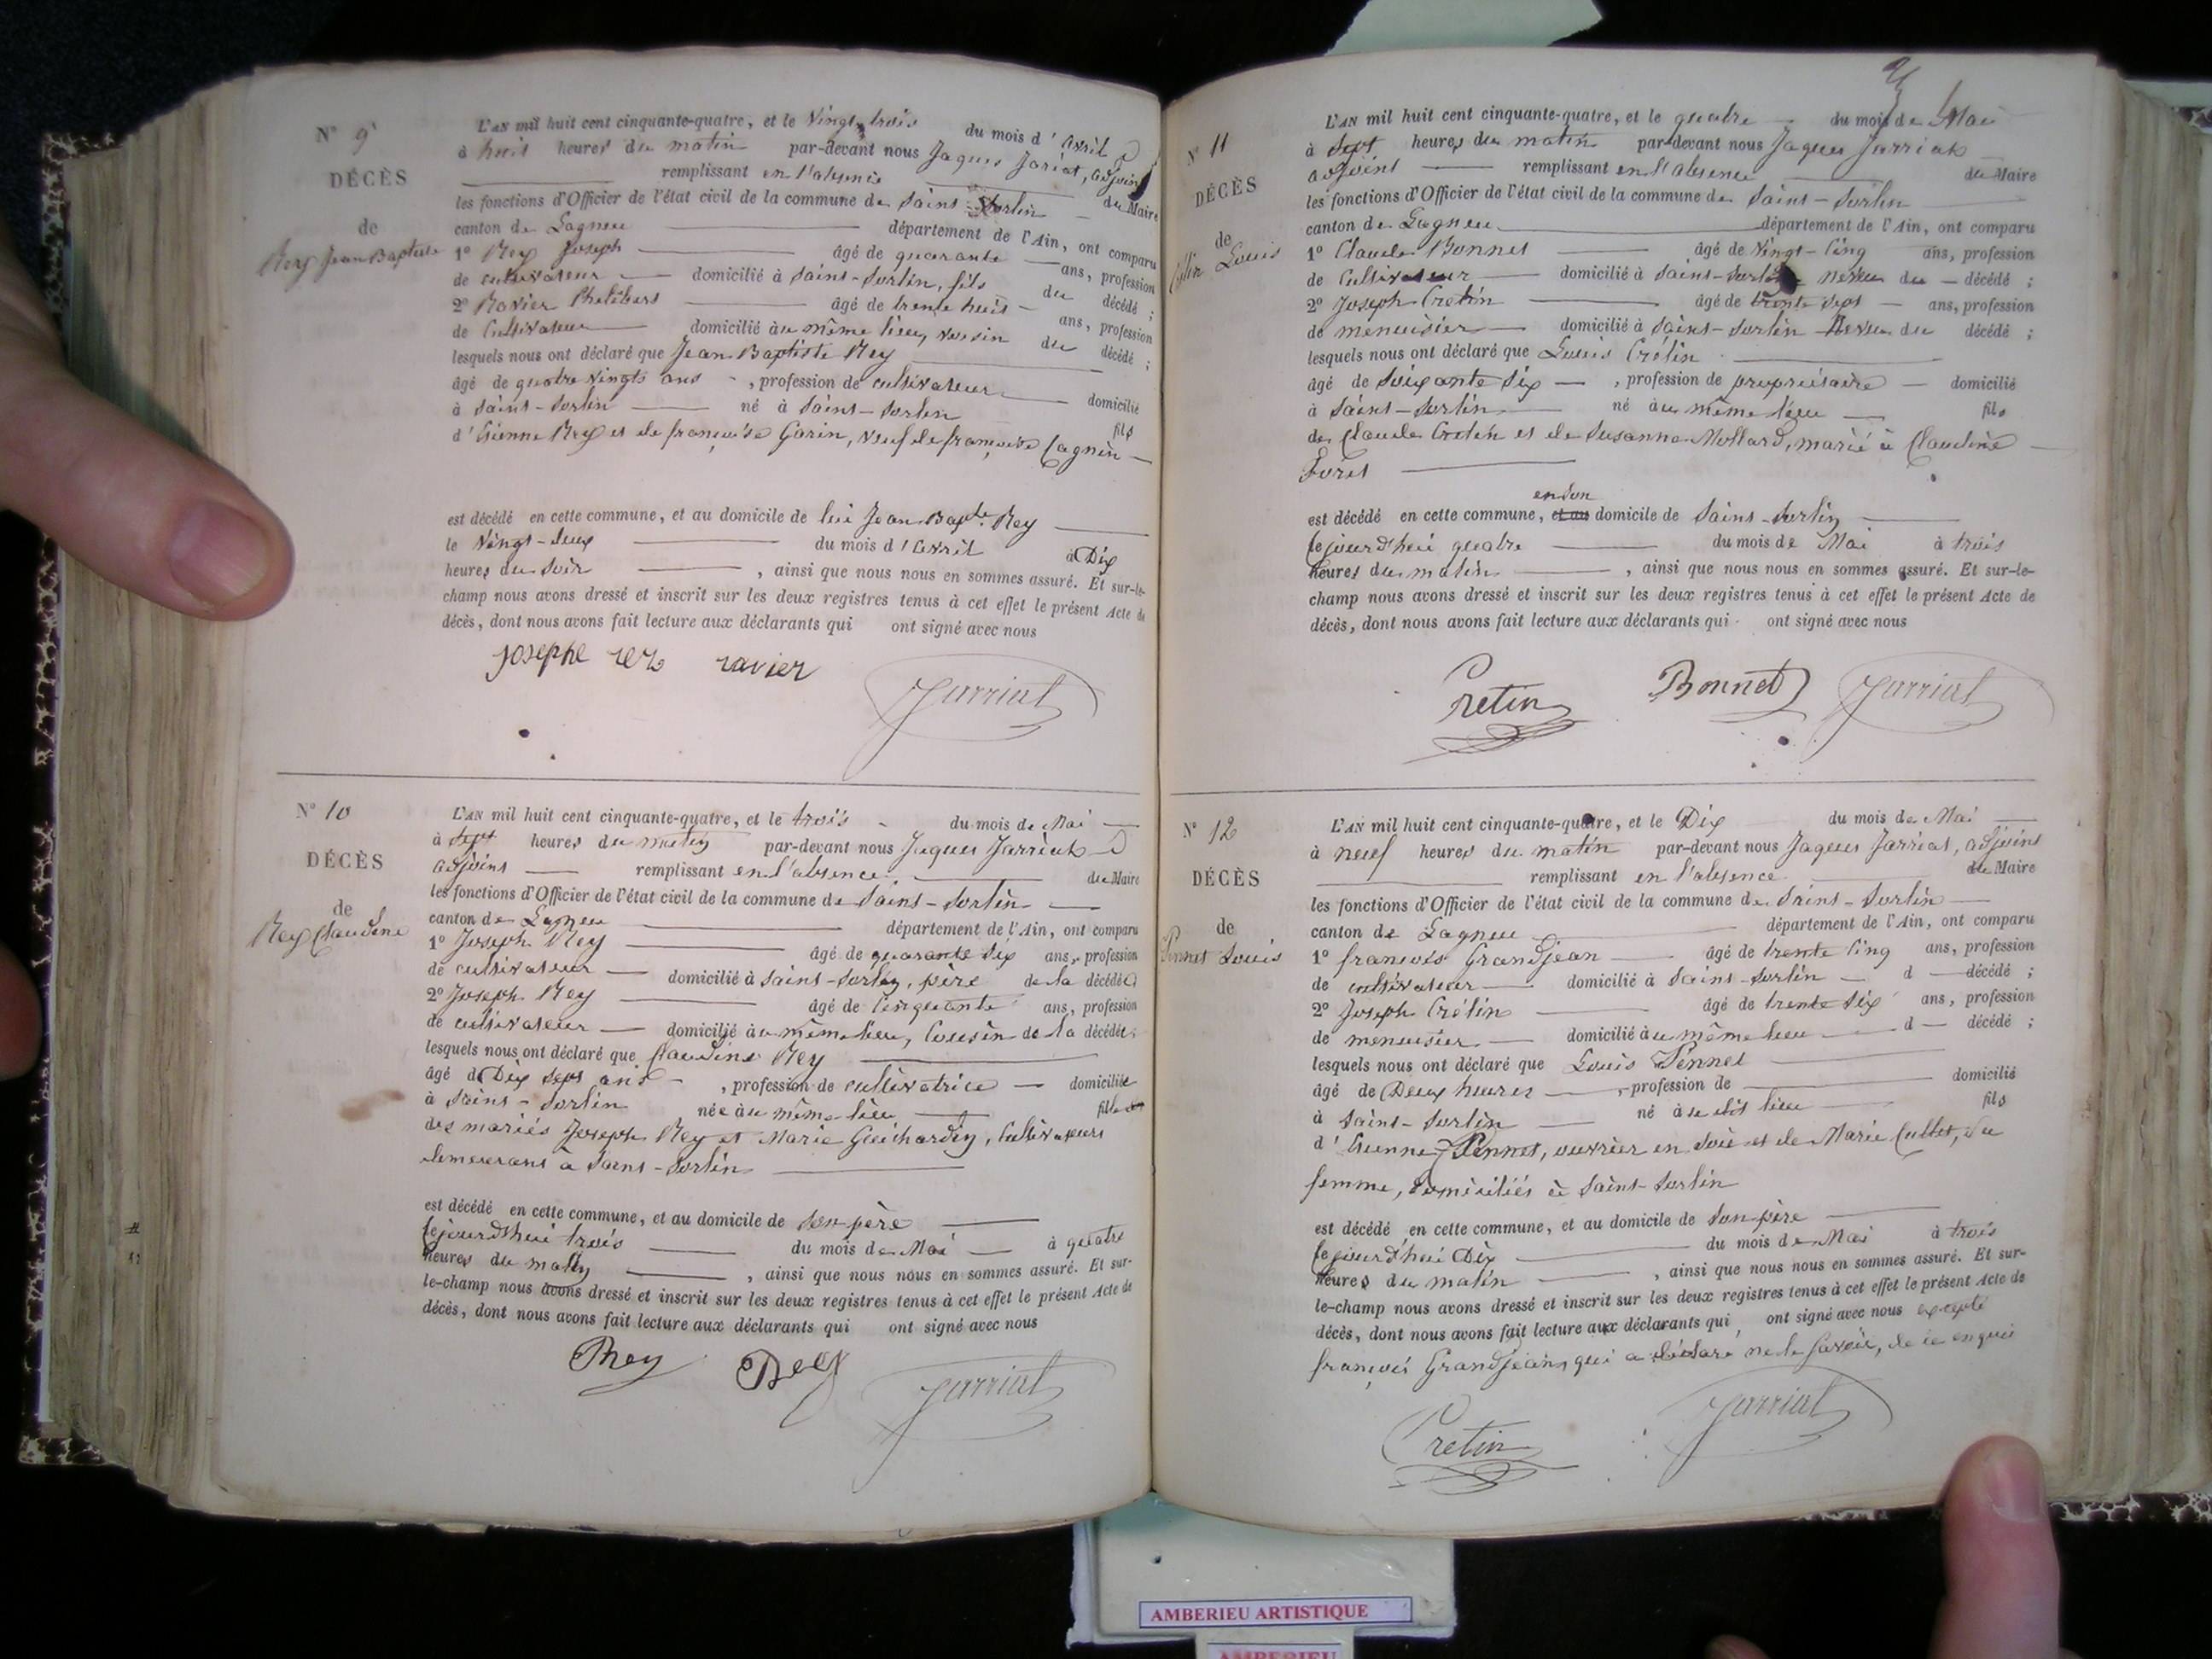 N° 9
DÉCÈS
de
Rey Jean Baptiste
L'AN mil huit cent cinquante-quatre, et le Vingt trois du mois d'Avril
à huit heures du matin par-devant nous Jaques Jariat, adjoint
remplissant en l'absence du Maire
les fonctions d'Officier de l'état civil de la commune de Saint-Sorlin
canton de Lagneu département de l'Ain, ont comparu
1° Rey Joseph âgé de quarante ans, profession
de cultivateur domicilié à Saint-Sorlin, fils du décédé ;
2° Ravier Philibert âgé de trente huit ans, profession
de Cultivateur domicilié au même lieu, voisin du décédé ;
lesquels nous ont déclaré que Jean Baptiste Rey
âgé de quatre vingts ans, profession de cultivateur domicilié
à Saint-Sorlin né à Saint-Sorlin fils
d'Etienne Rey et de françoise Garin, veuf de françoise Cagnin
est décédé en cette commune, et au domicile de lui Jean Bapte Rey
le Vingt-deux du mois d'Avril à Dix
heures du soir, ainsi que nous nous en sommes assuré. Et sur-le-
champ nous avons dressé et inscrit sur les deux registres tenus à cet effet le présent Acte de
décès, dont nous avons fait lecture aux déclarants qui ont signé avec nous
josephe rey ravier Jarriat
N° 10
DÉCÈS
de
Rey Claudine
L'AN mil huit cent cinquante-quatre, et le trois du mois de Mai
à sept heures du matin par-devant nous Jaques Jarriat
adjoint remplissant en l'absence du Maire
les fonctions d'Officier de l'état civil de la commune de Saint-Sorlin
canton de Lagneu département de l'Ain, ont comparu
1° Joseph Rey âgé de quarante six ans, profession
de cultivateur domicilié à Saint-Sorlin, père de la décédée
2° Joseph Rey âgé de Cinquante ans, profession
de cultivateur domicilié au même lieu, Cousin de la décédée ;
lesquels nous ont déclaré que Claudine Rey
âgé de Dix sept ans, profession de cultivatrice domiciliée
à Saint-Sorlin née au même lieu fille
des mariés Joseph Rey et Marie Guichardin, Cultivateurs
demeurant à Saint-Sorlin
est décédé en cette commune, et au domicile de son père
Cejourd'hui trois du mois de Mai à quatre
heures du matin, ainsi que nous nous en sommes assuré. Et sur-
le-champ nous avons dressé et inscrit sur les deux registres tenus à cet effet le présent Acte de
décès, dont nous avons fait lecture aux déclarants qui ont signé avec nous
Rey Rey Jarriat
N° 11
DÉCÈS
de
Louis
L'AN mil huit cent cinquante-quatre, et le quatre du mois de Mai
à sept heures du matin par-devant nous Jaques Jarriat
adjoint remplissant en l'absence du Maire
les fonctions d'Officier de l'état civil de la commune de Saint-Sorlin
canton de Lagneu département de l'Ain, ont comparu
1° Claude Bonnet âgé de Vingt-Cinq ans, profession
de Cultivateur domicilié à Saint-Sorlin neveu du décédé ;
2° Joseph Cretin âgé de trente sept ans, profession
de menuisier domicilié à Saint-Sorlin Neveu du décédé ;
lesquels nous ont déclaré que Louis Crétin
âgé de soixante six, profession de propriétaire domicilié
à Saint-Sorlin né au même lieu fils
de Claude Cretin et de Susanne Mollard, marié à Claudine
en son
est décédé en cette commune, et au domicile de Saint-Sorlin
Cejourd'hui quatre du mois de Mai à trois
heures du matin, ainsi que nous nous en sommes assuré. Et sur-le-
champ nous avons dressé et inscrit sur les deux registres tenus à cet effet le présent Acte de
décès, dont nous avons fait lecture aux déclarants qui ont signé avec nous
Cretin Bonnet Jarriat
N° 12
DÉCÈS
de
Pennet Louis
L'AN mil huit cent cinquante-quatre, et le Dix du mois de Mai
à neuf heures du matin par-devant nous Jaques Jarriat, adjoint
remplissant en l'absence du Maire
les fonctions d'Officier de l'état civil de la commune de Saint-Sorlin
canton de Lagneu département de l'Ain, ont comparu
1° francois Grandjean âgé de trente Cinq ans, profession
de cultivateur domicilié à Saint-Sorlin d décédé ;
2° Joseph Crétin âgé de trente six ans, profession
de menuisier domicilié au même lieu d décédé ;
lesquels nous ont déclaré que Louis Pennet
âgé de Deux heures, profession de domicilié
à Saint-Sorlin né au dit lieu fils
d'Etienne Pennet, ouvrier en soie et de Marie Cullet, sa
femme, domiciliés à Saint-Sorlin
est décédé en cette commune, et au domicile de son père
Cejourd'hui Dix du mois de Mai à trois
heures du matin, ainsi que nous nous en sommes assuré. Et sur-
le-champ nous avons dressé et inscrit sur les deux registres tenus à cet effet le présent Acte de
décès, dont nous avons fait lecture aux déclarants qui ont signé avec nous excepté
françois Grandjean, qui a déclaré ne le savoir, de ce enquis
Cretin Jarriat
AMBERIEU ARTISTIQUE
AMBERIEU